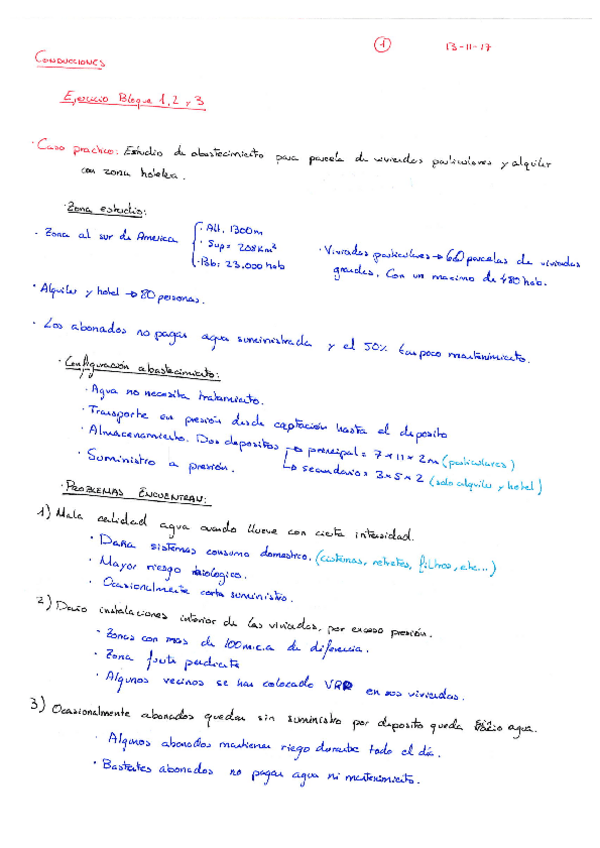 1
13-11-17
CONDUCCIONES
Ejercicio Bloque 1, 2 y 3
· Caso practico: Estudio de abastecimiento para parcela de viviendas particulares y alquiler
con zona hotelera.
· Zona estudio:
· Zona al sur de America
· Alt. 1300m
· Sup= 208km²
· Pob: 23.000 hab
· Viviendas particulares → 660 parcelas de viviendas
grandes. Con un maximo de 480 hab.
· Alquiler y hotel → 80 personas.
· Los abonados no pagan agua suministrada y el 50% tampoco mantenimiento.
· Configuración abastecimiento:
· Agua no necesita tratamiento.
· Transporte en presión desde captación hasta el deposito
· Almacenamiento. Dos depositos → principal = 7 x 11 x 2m (particulares)
↳ secundario = 3 x 5 x 2 (solo alquiler y hotel)
· Suministro a presión.
· PROBLEMAS ENCUENTRAN:
1) Mala calidad agua cuando llueve con cierta intensidad.
· Daña sistemas consumo domestico. (cisternas, retretes, filtros, etc...)
· Mayor riesgo biologico.
· Ocasionalmente corta suministro.
2) Daño instalaciones interior de las viviendas, por exceso presión.
· Zonas con mas de 100 m.c.a de diferencia.
· Zona fuerte pendiente
· Algunos vecinos se han colocado VRP en sus viviendas.
3) Ocasionalmente abonados quedan sin suministro por deposito queda vacio agua.
· Algunos abonados mantienen riego durante todo el día.
· Bastantes abonados no pagan agua ni mantenimiento.